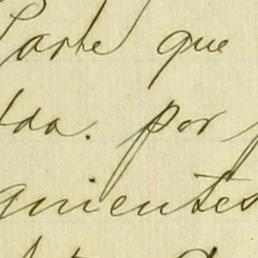 Parte que
da. por
guientes